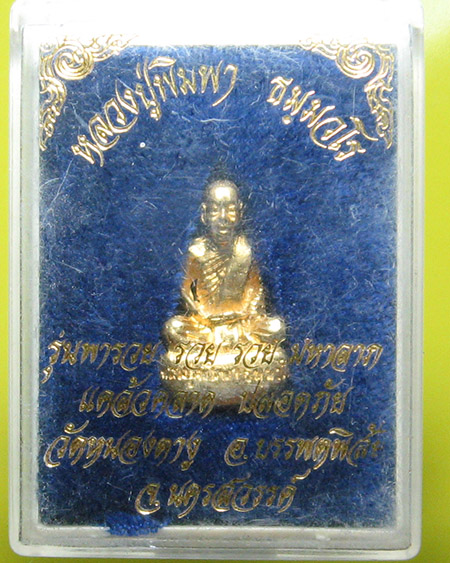 หลวงปู่พิมพา ธมฺมวโร
รุ่นพารวย รวย รวย มหาลาภ
แคล้วคลาด ปลอดภัย
วัดหนองตางู อ.บรรพตพิสัย
จ.นครสวรรค์